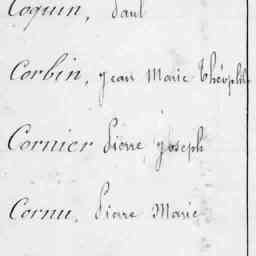 Coquin, Paul
Corbin, Jean Marie Théophile
Cornier Pierre Joseph
Cornu, Pierre Marie